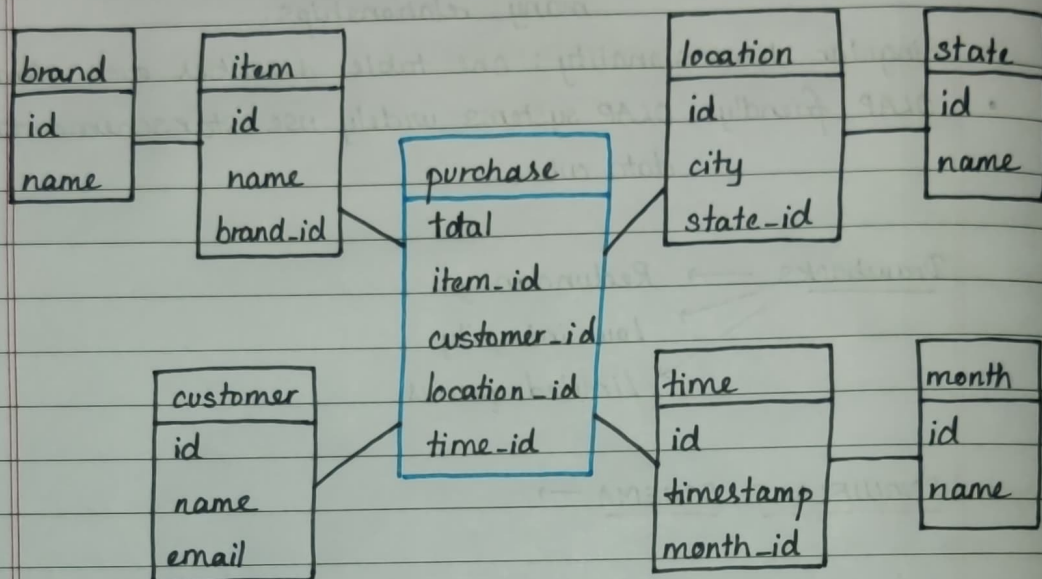 brand
id
name
item
id
name
brand_id
purchase
total
item_id
customer_id
location_id
time_id
location
id
city
state_id
state
id
name
customer
id
name
email
time
id
timestamp
month_id
month
id
name